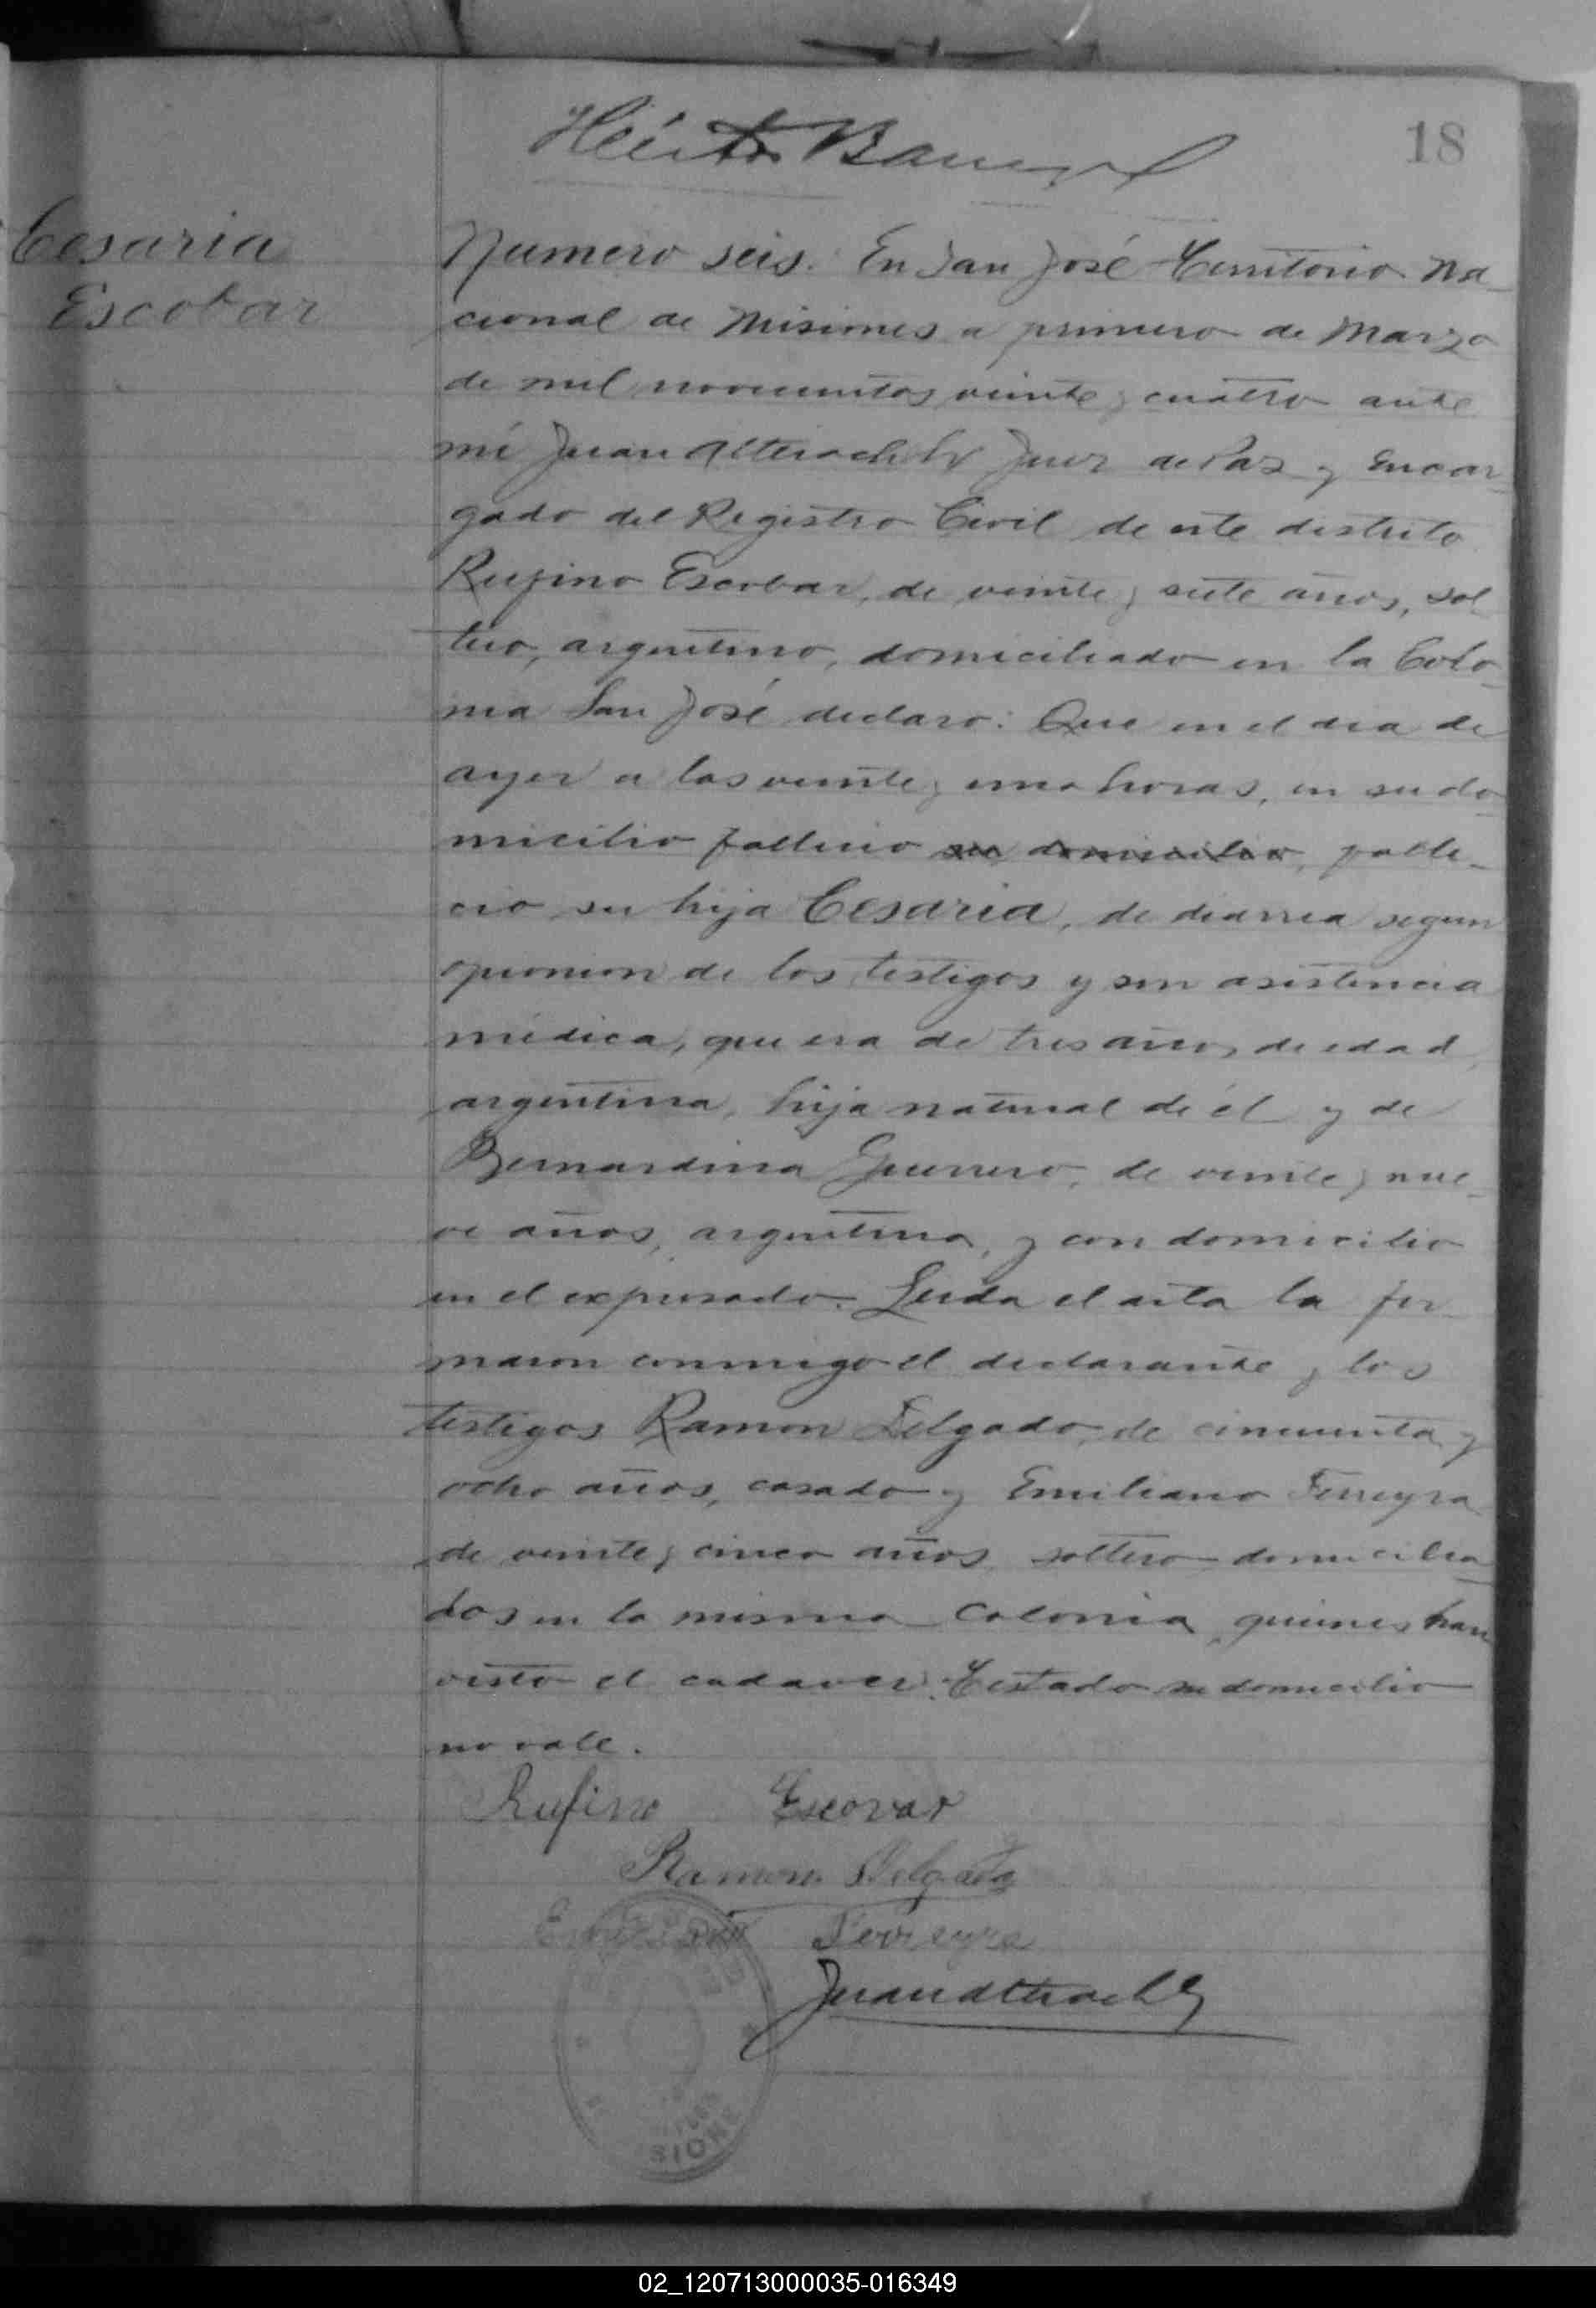 18
Cesaria
Escobar
Numero seis. En San José Territorio Na-
cional de Misiones a primero de Marzo
de mil novecientos veinte y cuatro ante
mi Juan Juez de Paz y Encar-
gado del Registro Civil de este distrito
Rufino Escobar, de veinte y siete años, sol-
tero, argentino, domiciliado en la Colo-
nia San José declaro: Que en el dia de
ayer a las veinte y una horas, en su do-
micilio fallecio su domicilio, falle-
cio su hija Cesaria, de diarrea segun
opinion de los testigos y sin asistencia
médica, que era de tres años de edad,
argentina, hija natural de él y de
Bernardina Guerrero, de veinte y nue-
ve años, argentina, y con domicilio
en el expresado. Leida el acta la fir-
maron conmigo el declarante y los
testigos Ramon Delgado, de cincuenta y
ocho años, casado y Emiliano Ferreyra
de veinte y cinco años soltero domicilia-
dos en la misma Colonia, quienes han
visto el cadaver. Testado su domicilio
no vale.
Rufino Escovar
Ramon Delgado
Ferreyra
Juan
SIONE
02_120713000035-016349